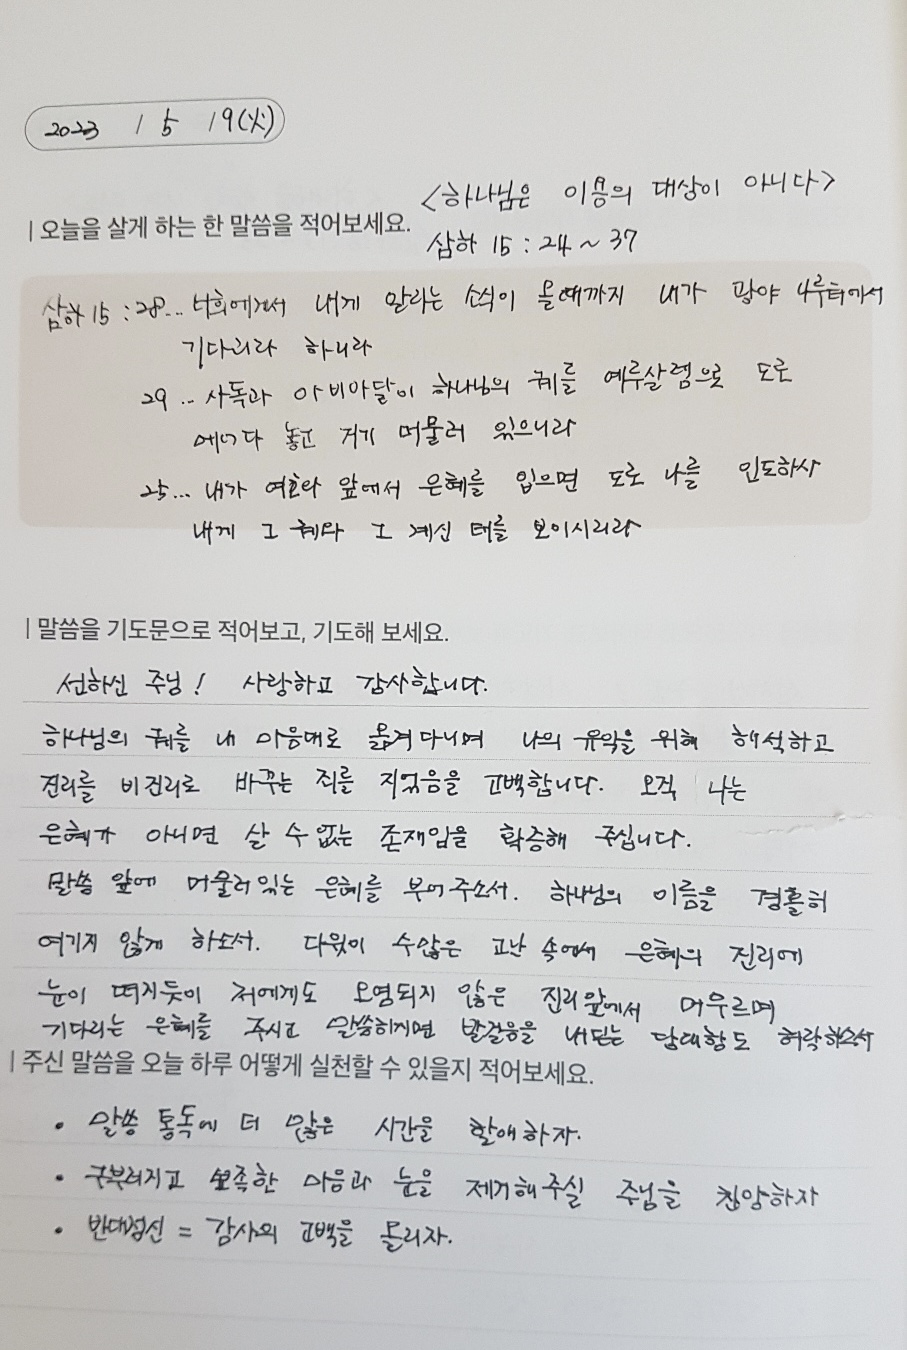 2023 / 5 / 9(火)
<하나님은 이용의 대상이 아니다>
| 오늘을 살게 하는 한 말씀을 적어보세요.
삼하 15 : 24 ~ 37
삼하 15 : 28... 너희에게서 내게 알리는 소식이 올 때까지 내가 광야 나루터에서
기다리리라 하니라
29 ... 사독과 아비아달이 하나님의 궤를 예루살렘으로 도로
메어다 놓고 거기 머물러 있으니라
25... 내가 여호와 앞에서 은혜를 입으면 도로 나를 인도하사
내게 그 궤와 그 계신 데를 보이시리라
| 말씀을 기도문으로 적어보고, 기도해 보세요.
선하신 주님! 사랑하고 감사합니다.
하나님의 궤를 내 마음대로 옮겨다니며 나의 유익을 위해 해석하고
진리를 비진리로 바꾸는 죄를 지었음을 고백합니다. 오직 나는
은혜가 아니면 살 수 없는 존재임을 확증해 주십니다.
말씀 앞에 머물러 있는 은혜를 부어주소서. 하나님의 이름을 경홀히
여기지 않게 하소서. 다윗이 수많은 고난 속에서 은혜의 진리에
눈이 떠지듯이 저에게도 오염되지 않은 진리 앞에서 머무르며
기다리는 은혜를 주시고 말씀하시면 발걸음을 내딛는 담대함도 허락하소서
| 주신 말씀을 오늘 하루 어떻게 실천할 수 있을지 적어보세요.
• 말씀 통독에 더 많은 시간을 할애하자.
• 구부러지고 뾰족한 마음과 눈을 제거해주실 주님을 찬양하자
• 반대정신 = 감사의 고백을 올리자.